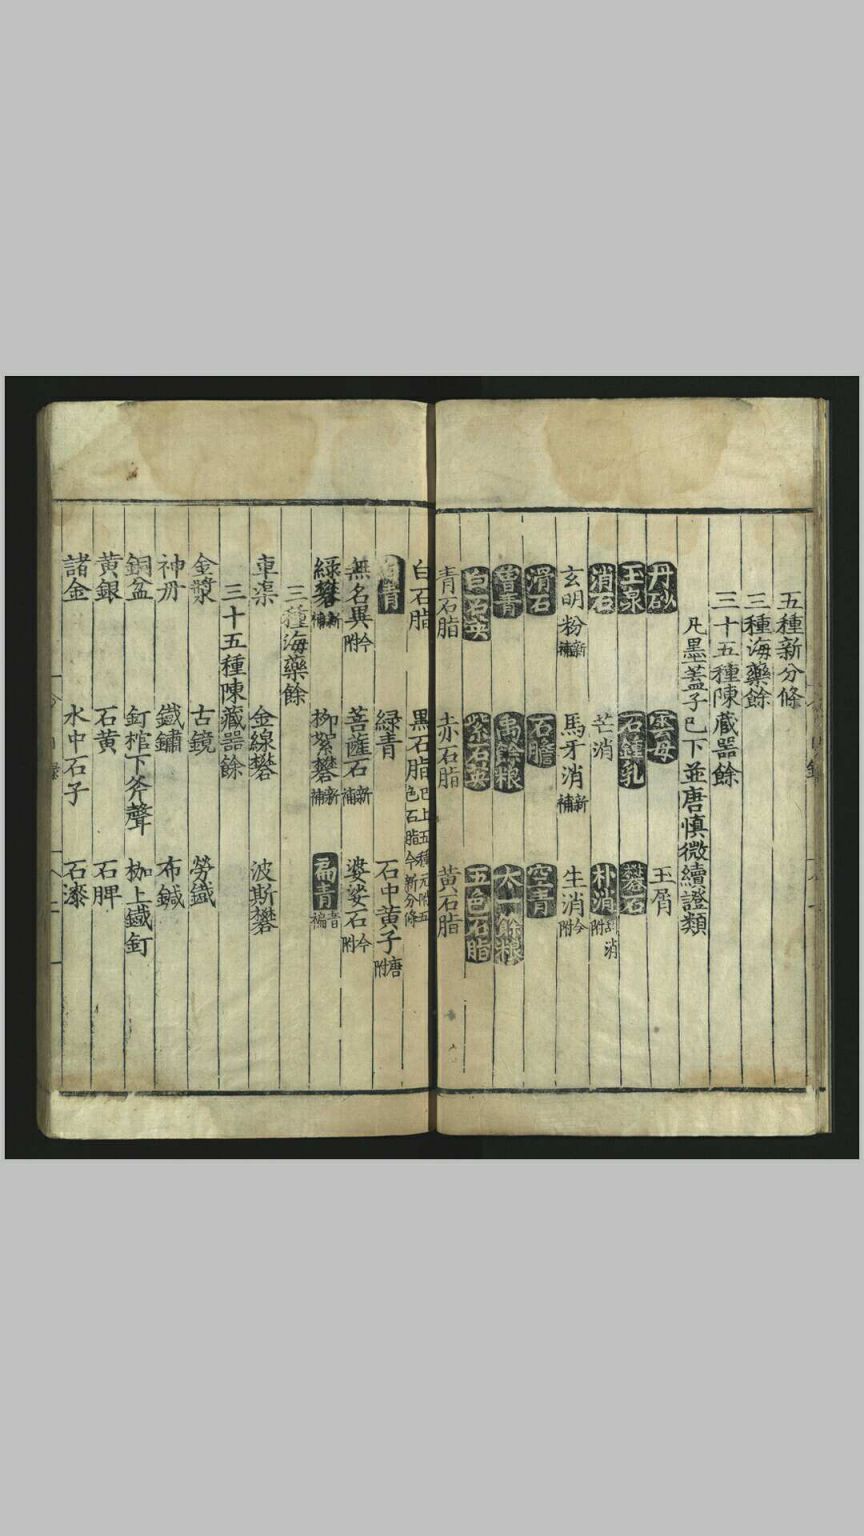 五種新分條
三種海藥餘
三十五種陳藏器餘
凡墨蓋子已下並唐慎微續證類
丹砂 雲母 玉屑
玉泉 石鍾乳 礬石
消石 芒消 朴消
玄明粉新補 馬牙消新補 生消今附
滑石 石膽 空青
曾青 禹餘粮 太一餘粮
白石英 紫石英 五色石脂
青石脂 赤石脂 黃石脂
白石脂 黑石脂已上五種元附五色石脂今新分條
白青 緑青 石中黃子唐附
無名異今附 菩薩石新補 婆娑石今附
緑礬新補 柳絮礬新補 扁青
三種海藥餘
車渠 金線礬 波斯礬
三十五種陳藏器餘
金漿 古鏡 勞鐵
神丹 鐵鏽 布鍼
銅盆 釘棺下斧聲 枷上鐵釘
黃銀 石黃 石脾
諸金 水中石子 石漆